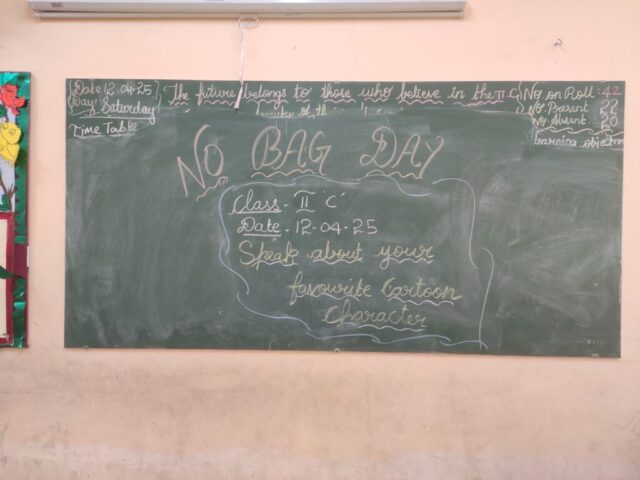 Date 12.04.25
Day: Saturday
Time Table
The future belongs to those who believe in the
II C
No on Roll: 42
No. Present: 22
No. Absent: 20
Learning objectiv
NO BAG DAY
Class - II 'C'
Date - 12-04-25
Speak about your
favourite Cartoon
character